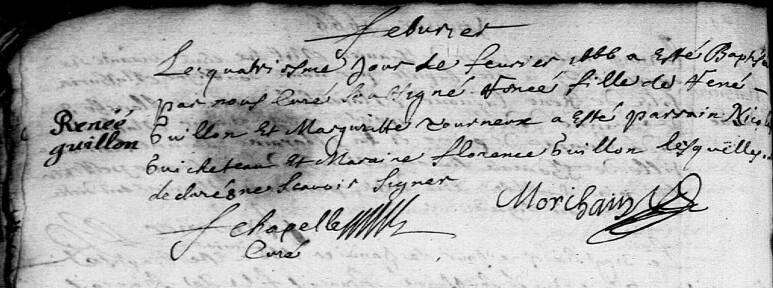 feburier
Le quatriesme Jour de feurier 1666 a esté Baptis
par nous Curé soubsigné Renée fille de René
Guillon Et Marguritte tourneux a esté parrain Nicol
Guicheteau Et Maraine florence Guillon lesquelles
declarés ne scauoir signer
Renée
guillon
fchapelle
Curé
Morihain